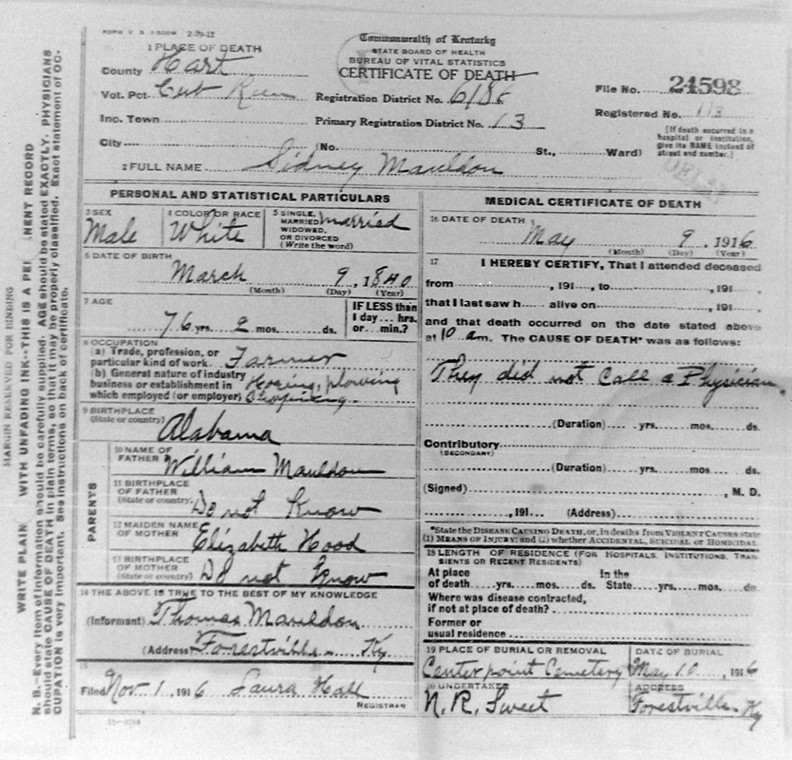 FORM V. S. 2-29-12
Commonwealth of Kentucky
STATE BOARD OF HEALTH
BUREAU OF VITAL STATISTICS
CERTIFICATE OF DEATH
1 PLACE OF DEATH
County Hart
Vot. Pct. Cub Run
Registration District No. 6186
File No. 24598
Inc. Town
Primary Registration District No. 13
Registered No. 113
[If death occurred in a hospital or institution, give its NAME instead of street and number.]
City (No. St., Ward)
2 FULL NAME Sidney Mauldon
PERSONAL AND STATISTICAL PARTICULARS
3 SEX Male
4 COLOR OR RACE White
5 SINGLE, MARRIED, WIDOWED, OR DIVORCED (Write the word) married
6 DATE OF BIRTH
March 9, 1840
(Month) (Day) (Year)
7 AGE
76 yrs. 2 mos. ds.
IF LESS than 1 day... hrs. or... min.?
8 OCCUPATION
(a) Trade, profession, or particular kind of work. Farmer
(b) General nature of industry business or establishment in which employed (or employer) Hoeing, plowing
9 BIRTHPLACE
(State or country) Alabama
PARENTS
10 NAME OF FATHER William Mauldon
11 BIRTHPLACE OF FATHER (State or country) Do not Know
12 MAIDEN NAME OF MOTHER Elizabeth Hood
BIRTHPLACE OF MOTHER (State or country) Do not Know
14 THE ABOVE IS TRUE TO THE BEST OF MY KNOWLEDGE
(Informant) Thomas Mauldon
(Address) Forestville Ky
15
Filed Nov. 1, 1916 Laura Hall
REGISTRAR
MEDICAL CERTIFICATE OF DEATH
16 DATE OF DEATH
May 9, 1916
(Month) (Day) (Year)
17 I HEREBY CERTIFY, That I attended deceased
from , 191 , to , 191
that I last saw h alive on , 191
and that death occurred on the date stated above
at 10 am. The CAUSE OF DEATH* was as follows:
They did not Call a Physician.
(Duration) yrs. mos. ds.
Contributory
(SECONDARY)
(Duration) yrs. mos. ds.
(Signed) , M. D.
, 191 (Address)
*State the DISEASE CAUSING DEATH, or, in deaths from VIOLENT CAUSES state
(1) MEANS OF INJURY; and (2) whether ACCIDENTAL, SUICIDAL or HOMICIDAL.
18 LENGTH OF RESIDENCE (FOR HOSPITALS, INSTITUTIONS, TRANSIENTS OR RECENT RESIDENTS)
At place of death yrs. mos. ds. In the State yrs. mos. ds.
Where was disease contracted, if not at place of death?
Former or usual residence
19 PLACE OF BURIAL OR REMOVAL Centerpoint Cemetery
DATE OF BURIAL May 10, 1916
20 UNDERTAKER N. R. Sweet
ADDRESS Forestville Ky
MARGIN RESERVED FOR BINDING
WRITE PLAIN WITH UNFADING INK--THIS IS A PE NENT RECORD
N. B.—Every item of information should be carefully supplied. AGE should be stated EXACTLY. PHYSICIANS
should state CAUSE OF DEATH in plain terms, so that it may be properly classified. Exact statement of OC-
CUPATION is very important. See instructions on back of certificate.